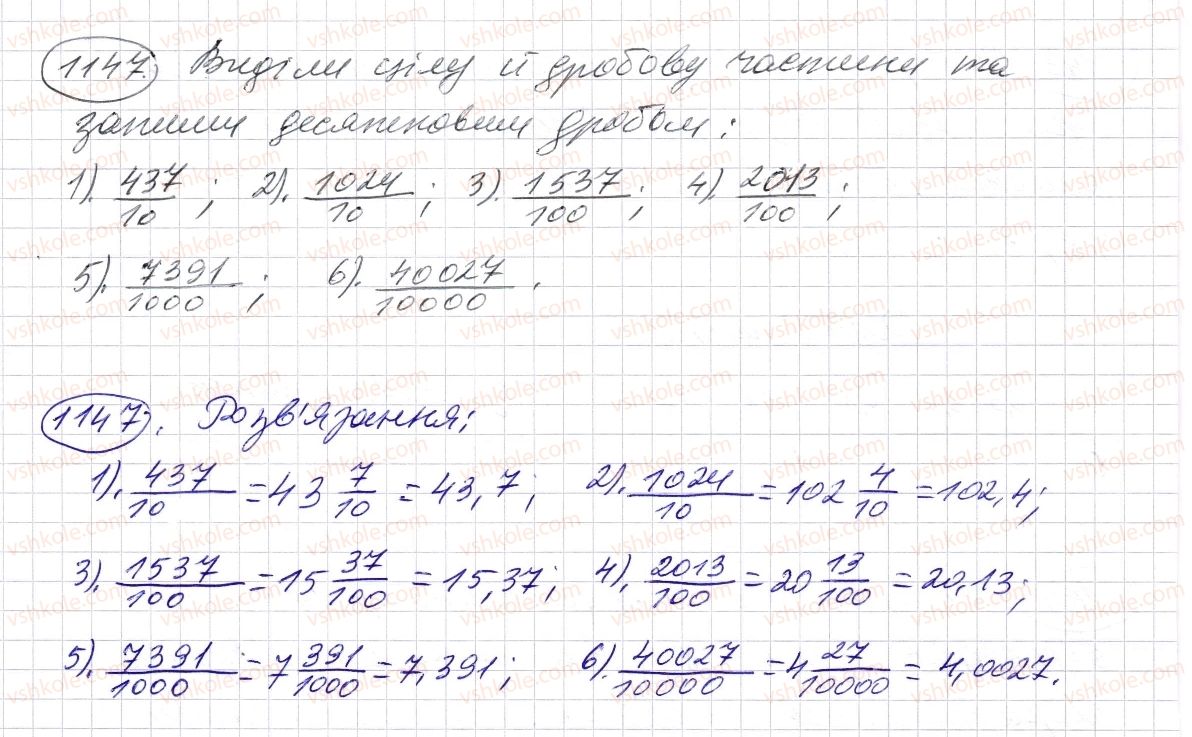 1147. Виділи цілу й дробову частини та
запиши десятковим дробом:
1). 437/10 ; 2). 1024/10 ; 3). 1537/100 ; 4). 2013/100 ;
5). 7391/1000 ; 6). 40027/10000 .
1147. Розв'язання:
1). 437/10 = 43 7/10 = 43,7; 2). 1024/10 = 102 4/10 = 102,4;
3). 1537/100 = 15 37/100 = 15,37; 4). 2013/100 = 20 13/100 = 20,13;
5). 7391/1000 = 7 391/1000 = 7,391; 6). 40027/10000 = 4 27/10000 = 4,0027.
vshkole.com